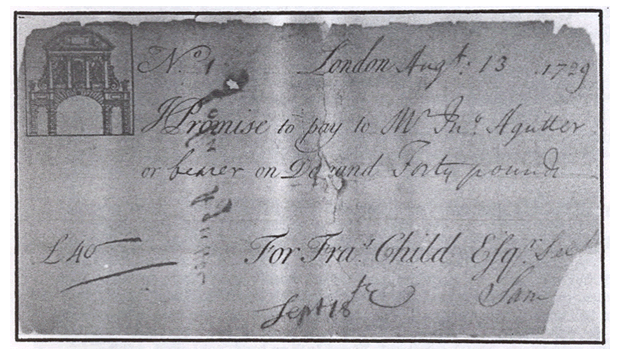 No. 1 London Augt. 13 1729
I Promise to pay to Mr Jno. Aqutter
or bearer on Demand Forty pounds
£40 For Fras. Child Esqr.
Sam
Sept 18th